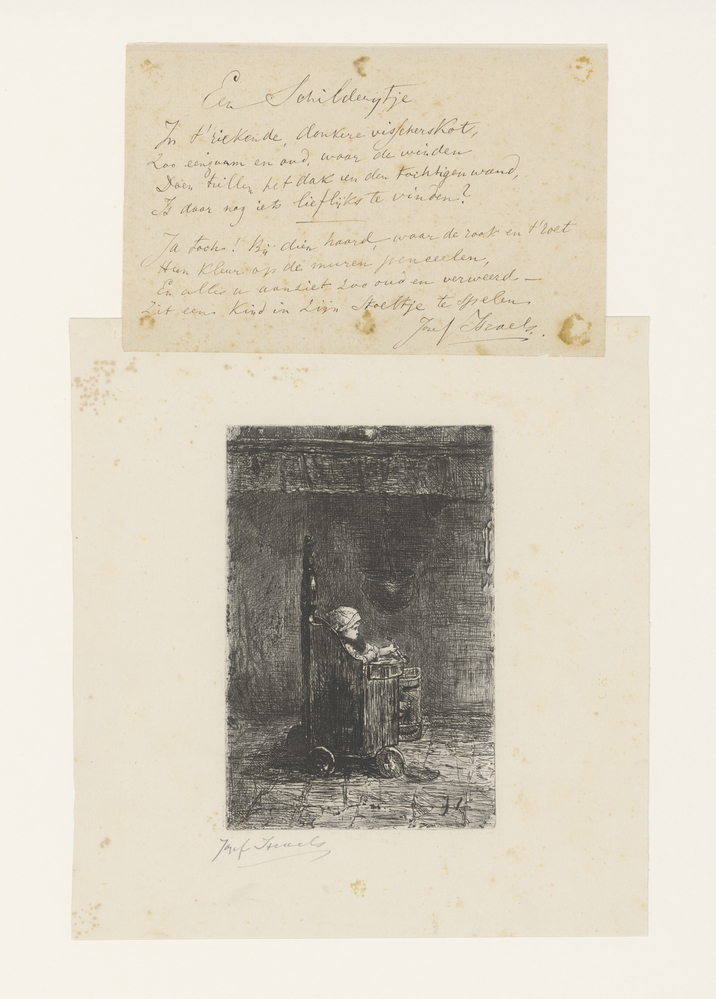 Een Schilderijtje.
In t'riekende, donkere visschershot,
Zoo eenzaam en oud, waar de winden
Doen trillen het dak en den tochtigen wand,
Is daar nog iets lieflijks te vinden?
Ja toch! Bij dien haard, waar de rook en t'roet
Hun kleur op de muren penseelen,
En alles er aanziet zoo oud en verweerd —
Zit een Kind in zijn Stoeltje te spelen
Jozef Israels.
Jozef Israels